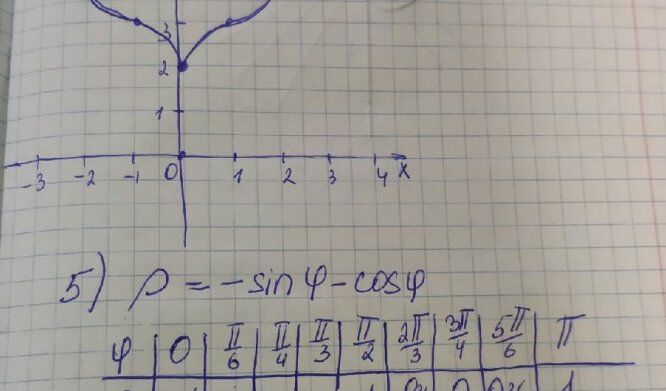 3
2
1
-3 -2 -1 0 1 2 3 4 x
5) ρ = -sinφ - cosφ
φ | 0 | π/6 | π/4 | π/3 | π/2 | 2π/3 | 3π/4 | 5π/6 | π